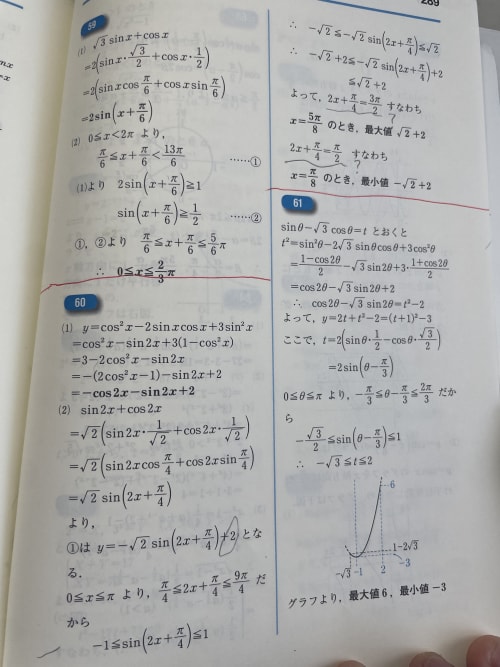 289
59
(1) √3 sin x + cos x
=2(sin x・√3/2 + cos x・1/2)
=2(sin x cos π/6 + cos x sin π/6)
=2sin(x + π/6)
(2) 0≦x<2π より,
π/6≦x+π/6<13π/6 ……①
(1)より 2sin(x+π/6)≧1
sin(x+π/6)≧1/2 ……②
①, ②より π/6≦x+π/6≦5/6 π
∴ 0≦x≦2/3 π
60
(1) y=cos²x−2sin x cos x+3sin²x
=cos²x−sin2x+3(1−cos²x)
=3−2cos²x−sin2x
=−(2cos²x−1)−sin2x+2
=−cos2x−sin2x+2
(2) sin2x+cos2x
=√2(sin2x・1/√2+cos2x・1/√2)
=√2(sin2x cos π/4+cos2x sin π/4)
=√2 sin(2x+π/4)
より,
①は y=−√2 sin(2x+π/4)+2 とな
る.
0≦x≦π より, π/4≦2x+π/4≦9π/4 だ
から
−1≦sin(2x+π/4)≦1
∴ −√2≦−√2 sin(2x+π/4)≦√2
∴ −√2+2≦−√2 sin(2x+π/4)+2
≦√2+2
よって, 2x+π/4=3π/2 すなわち
?
x=5π/8 のとき, 最大値 √2+2
2x+π/4=π/2 すなわち
?
x=π/8 のとき, 最小値 −√2+2
61
sinθ−√3 cosθ=t とおくと
t²=sin²θ−2√3 sinθcosθ+3cos²θ
=(1−cos2θ)/2−√3 sin2θ+3・(1+cos2θ)/2
=cos2θ−√3 sin2θ+2
∴ cos2θ−√3 sin2θ=t²−2
よって, y=2t+t²−2=(t+1)²−3
ここで, t=2(sinθ・1/2−cosθ・√3/2)
=2sin(θ−π/3)
0≦θ≦π より, −π/3≦θ−π/3≦2π/3 だか
ら
−√3/2≦sin(θ−π/3)≦1
∴ −√3≦t≦2
6
1−2√3
−3
−√3 −1 2
グラフより, 最大値 6, 最小値 −3